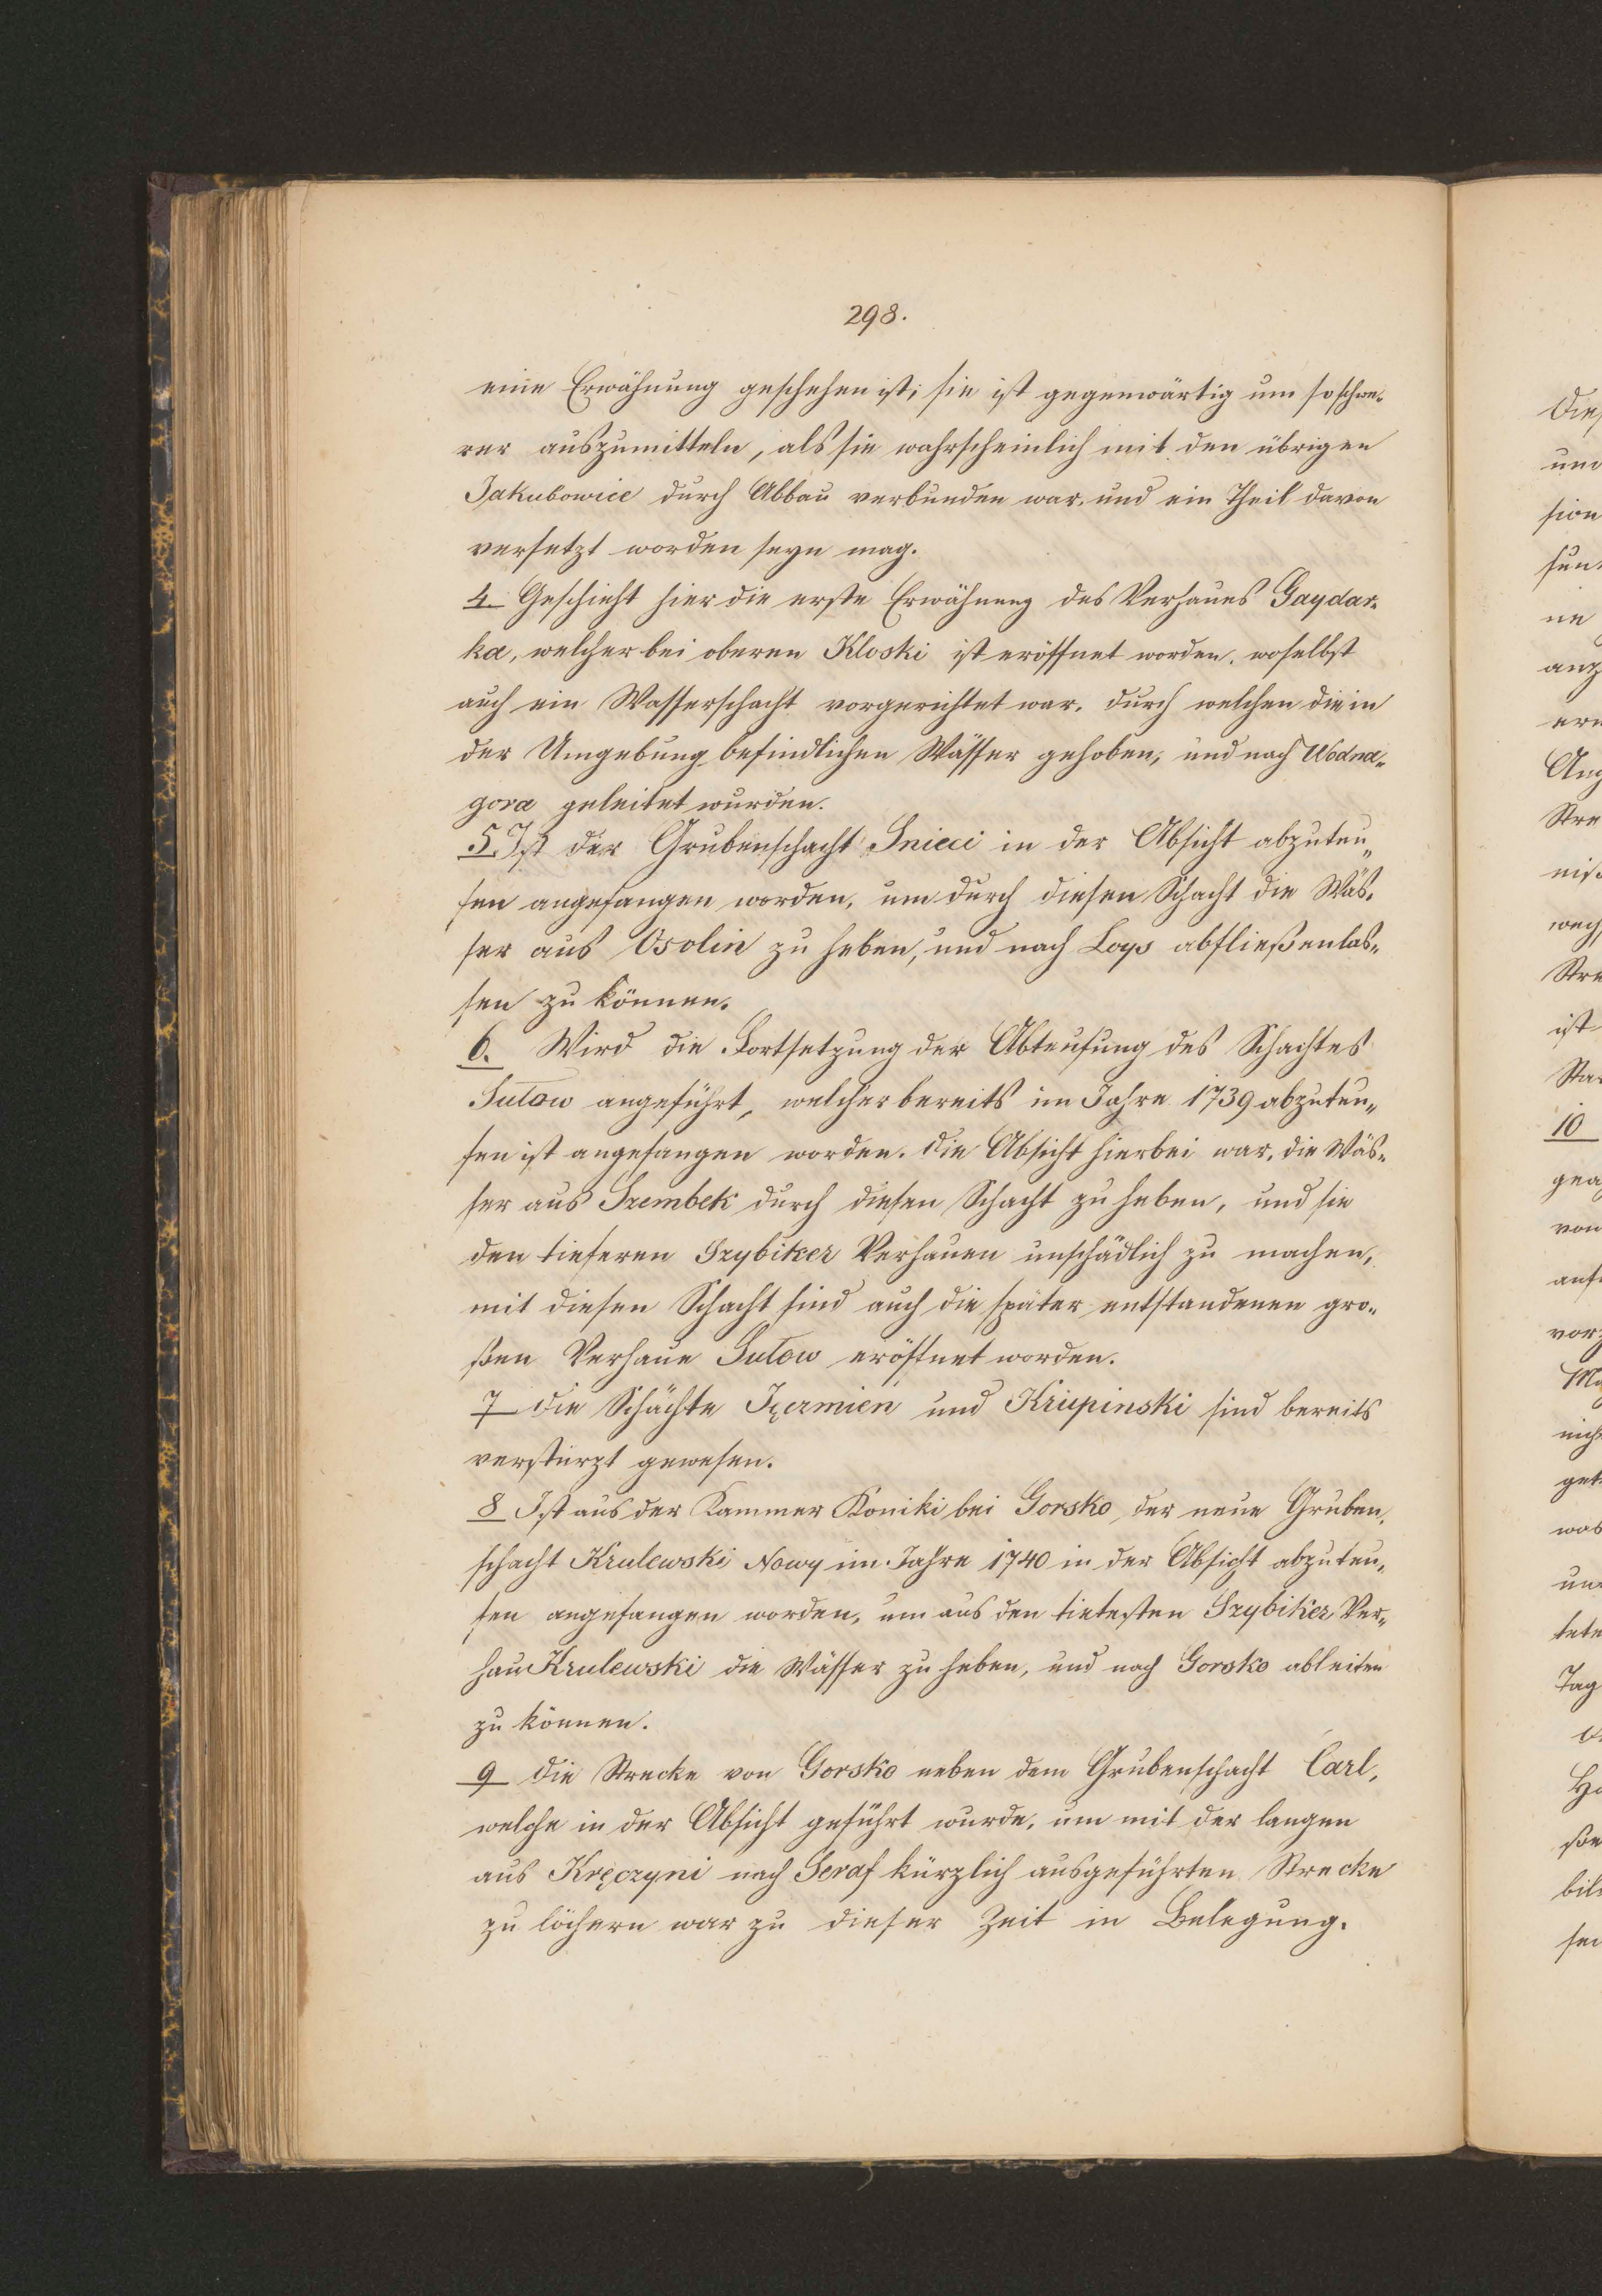 298.
eine Erwähnung geschehen ist; sie ist gegenwärtig um so schwe-
rer auszumitteln, als sie wahrscheinlich mit den übrigen
Jakubowice durch Abbau verbunden war, und ein Theil davon
versetzt worden seyn mag.
4 Geschieht hier die erste Erwähnung des Verhaues Gaydar-
ka, welcher bei oberen Kloski ist eröffnet worden, woselbst
auch ein Wasserschacht vorgerichtet war, durch welchen die in
der Umgebung befindlichen Wässer gehoben, und nach Wodna-
gora geleitet wurden.
5. Ist der Grubenschacht Snieci in der Absicht abzuteu-
fen angefangen worden, um durch diesen Schacht die Wäs-
ser aus Osolin zu heben, und nach Loys abfließen las-
sen zu können.
6. Wird die Fortsetzung der Abteufung des Schachtes
Sutow angeführt, welcher bereits im Jahre 1739 abzuteu-
fen ist angefangen worden. Die Absicht hierbei war, die Wäs-
ser aus Szembek durch diesen Schacht zu heben, und sie
den tieferen Szybiker Verhauen unschädlich zu machen,
mit diesen Schacht sind auch die später entstandenen gro-
ßen Verhaue Sutow eröffnet worden.
7 Die Schächte und Krupinski sind bereits
verstürzt gewesen.
8 Ist aus der Kammer Koniki bei Gorsko, der neue Gruben-
schacht Krulewski Nowy im Jahre 1740 in der Absicht abzuteu-
fen angefangen worden, um aus den tiefesten Szybiker Ver-
hau Krulewski die Wässer zu heben, und nach Gorsko ableiten
zu können.
9 Die Strecke von Gorsko neben dem Grubenschacht Carl,
welche in der Absicht geführt wurde, um mit der langen
aus Kręczyni nach Seraf kürzlich ausgeführten Strecke
zu löchern war zu dieser Zeit in Belegung.